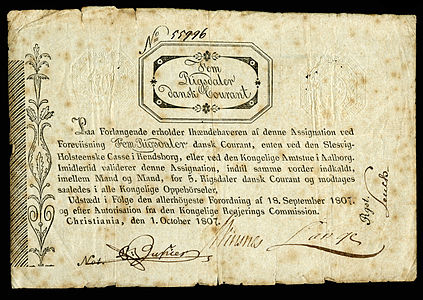 No 55996
Fem
Rigsdaler
dansk Courant
Paa Forlangende erholder Ihændehaveren af denne Assignation ved
Foreviisning Fem Rigsdaler dansk Courant, enten ved den Slesvig-
Holsteenske Casse i Rendsborg, eller ved den Kongelige Amtstue i Aalborg.
Imidlertid validerer denne Assignation, indtil samme vorder indkaldt,
imellem Mand og Mand, for 5. Rigsdaler dansk Courant og modtages
saaledes i alle Kongelige Oppebörseler.
Udstædt i Følge den allerhöieste Forordning af 18. September 1807.
og efter Autorisation fra den Kongelige Regjerings Commission.
Christiania, den 1. October 1807.
Not.